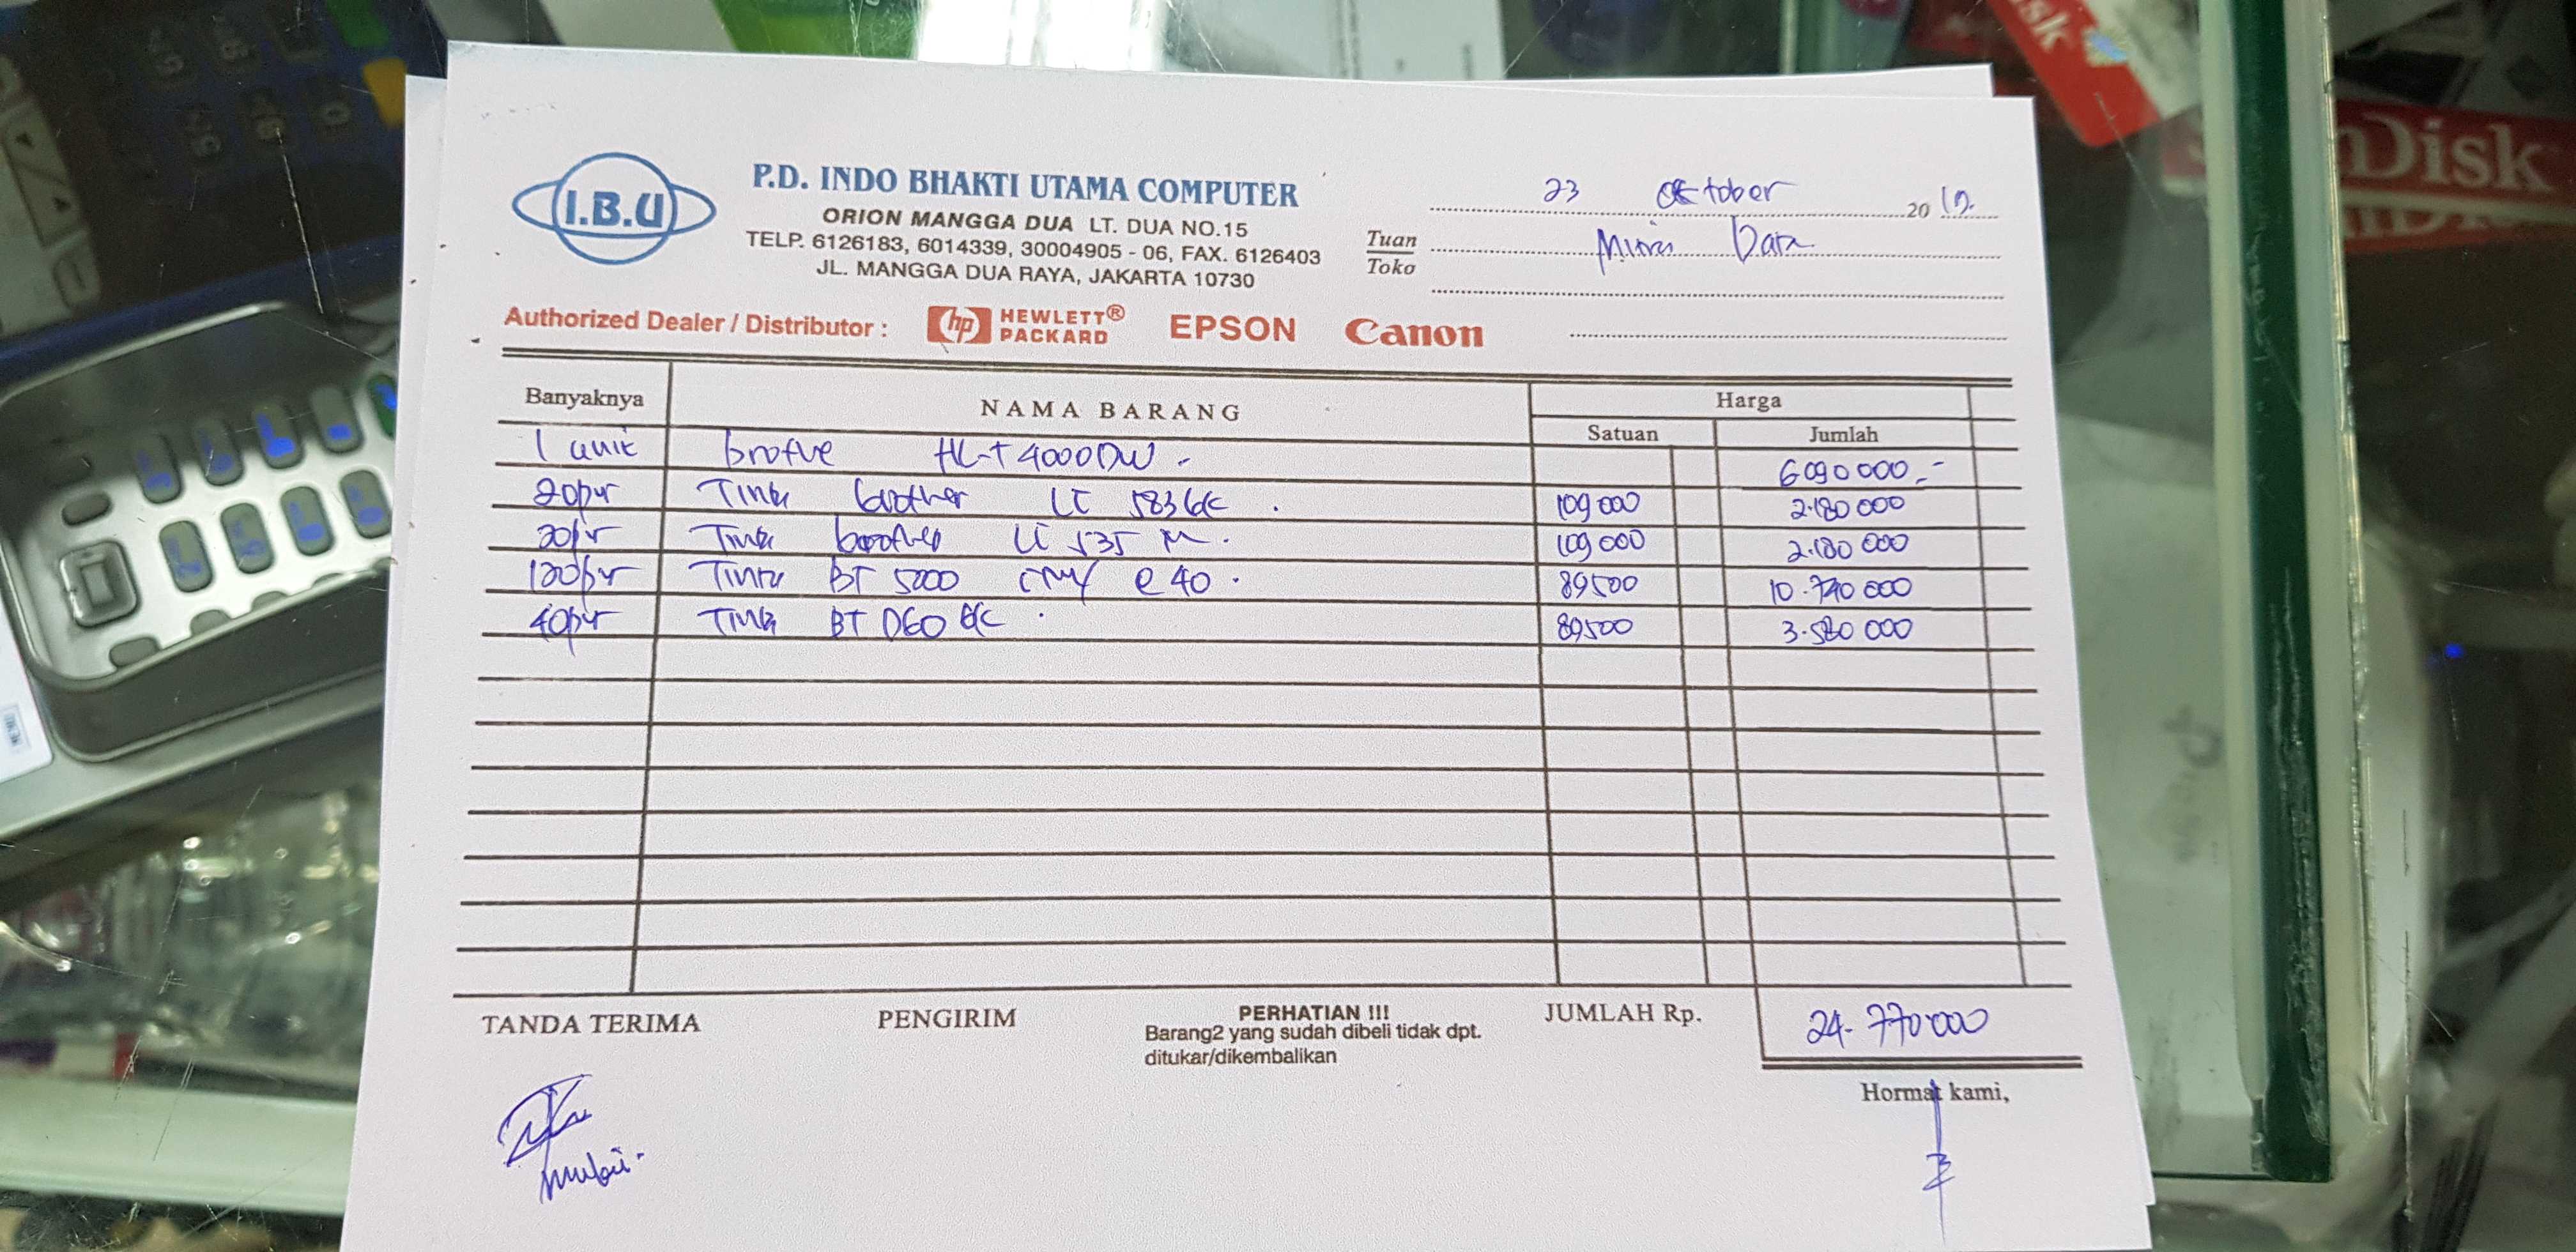 I.B.U
P.D. INDO BHAKTI UTAMA COMPUTER
ORION MANGGA DUA LT. DUA NO.15
TELP. 6126183, 6014339, 30004905 - 06, FAX. 6126403
JL. MANGGA DUA RAYA, JAKARTA 10730
23 Oktober 2019.
Tuan
Toko
Data
Authorized Dealer / Distributor : hp HEWLETT® PACKARD EPSON Canon
Banyaknya NAMA BARANG Harga
Satuan Jumlah
1 unit HL-T4000DW - 6090000,-
20 Tinta brother LC 583 109000 2.180000
20 Tinta brother LC 535 M. 109000 2.180000
120 Tinta BT 5000 CMY @ 40. 89500 10.740000
40 Tinta BT D60 BK 89500 3.580000
TANDA TERIMA PENGIRIM PERHATIAN !!! JUMLAH Rp. 24.770000
Barang2 yang sudah dibeli tidak dpt.
ditukar/dikembalikan
Hormat kami,
Disk